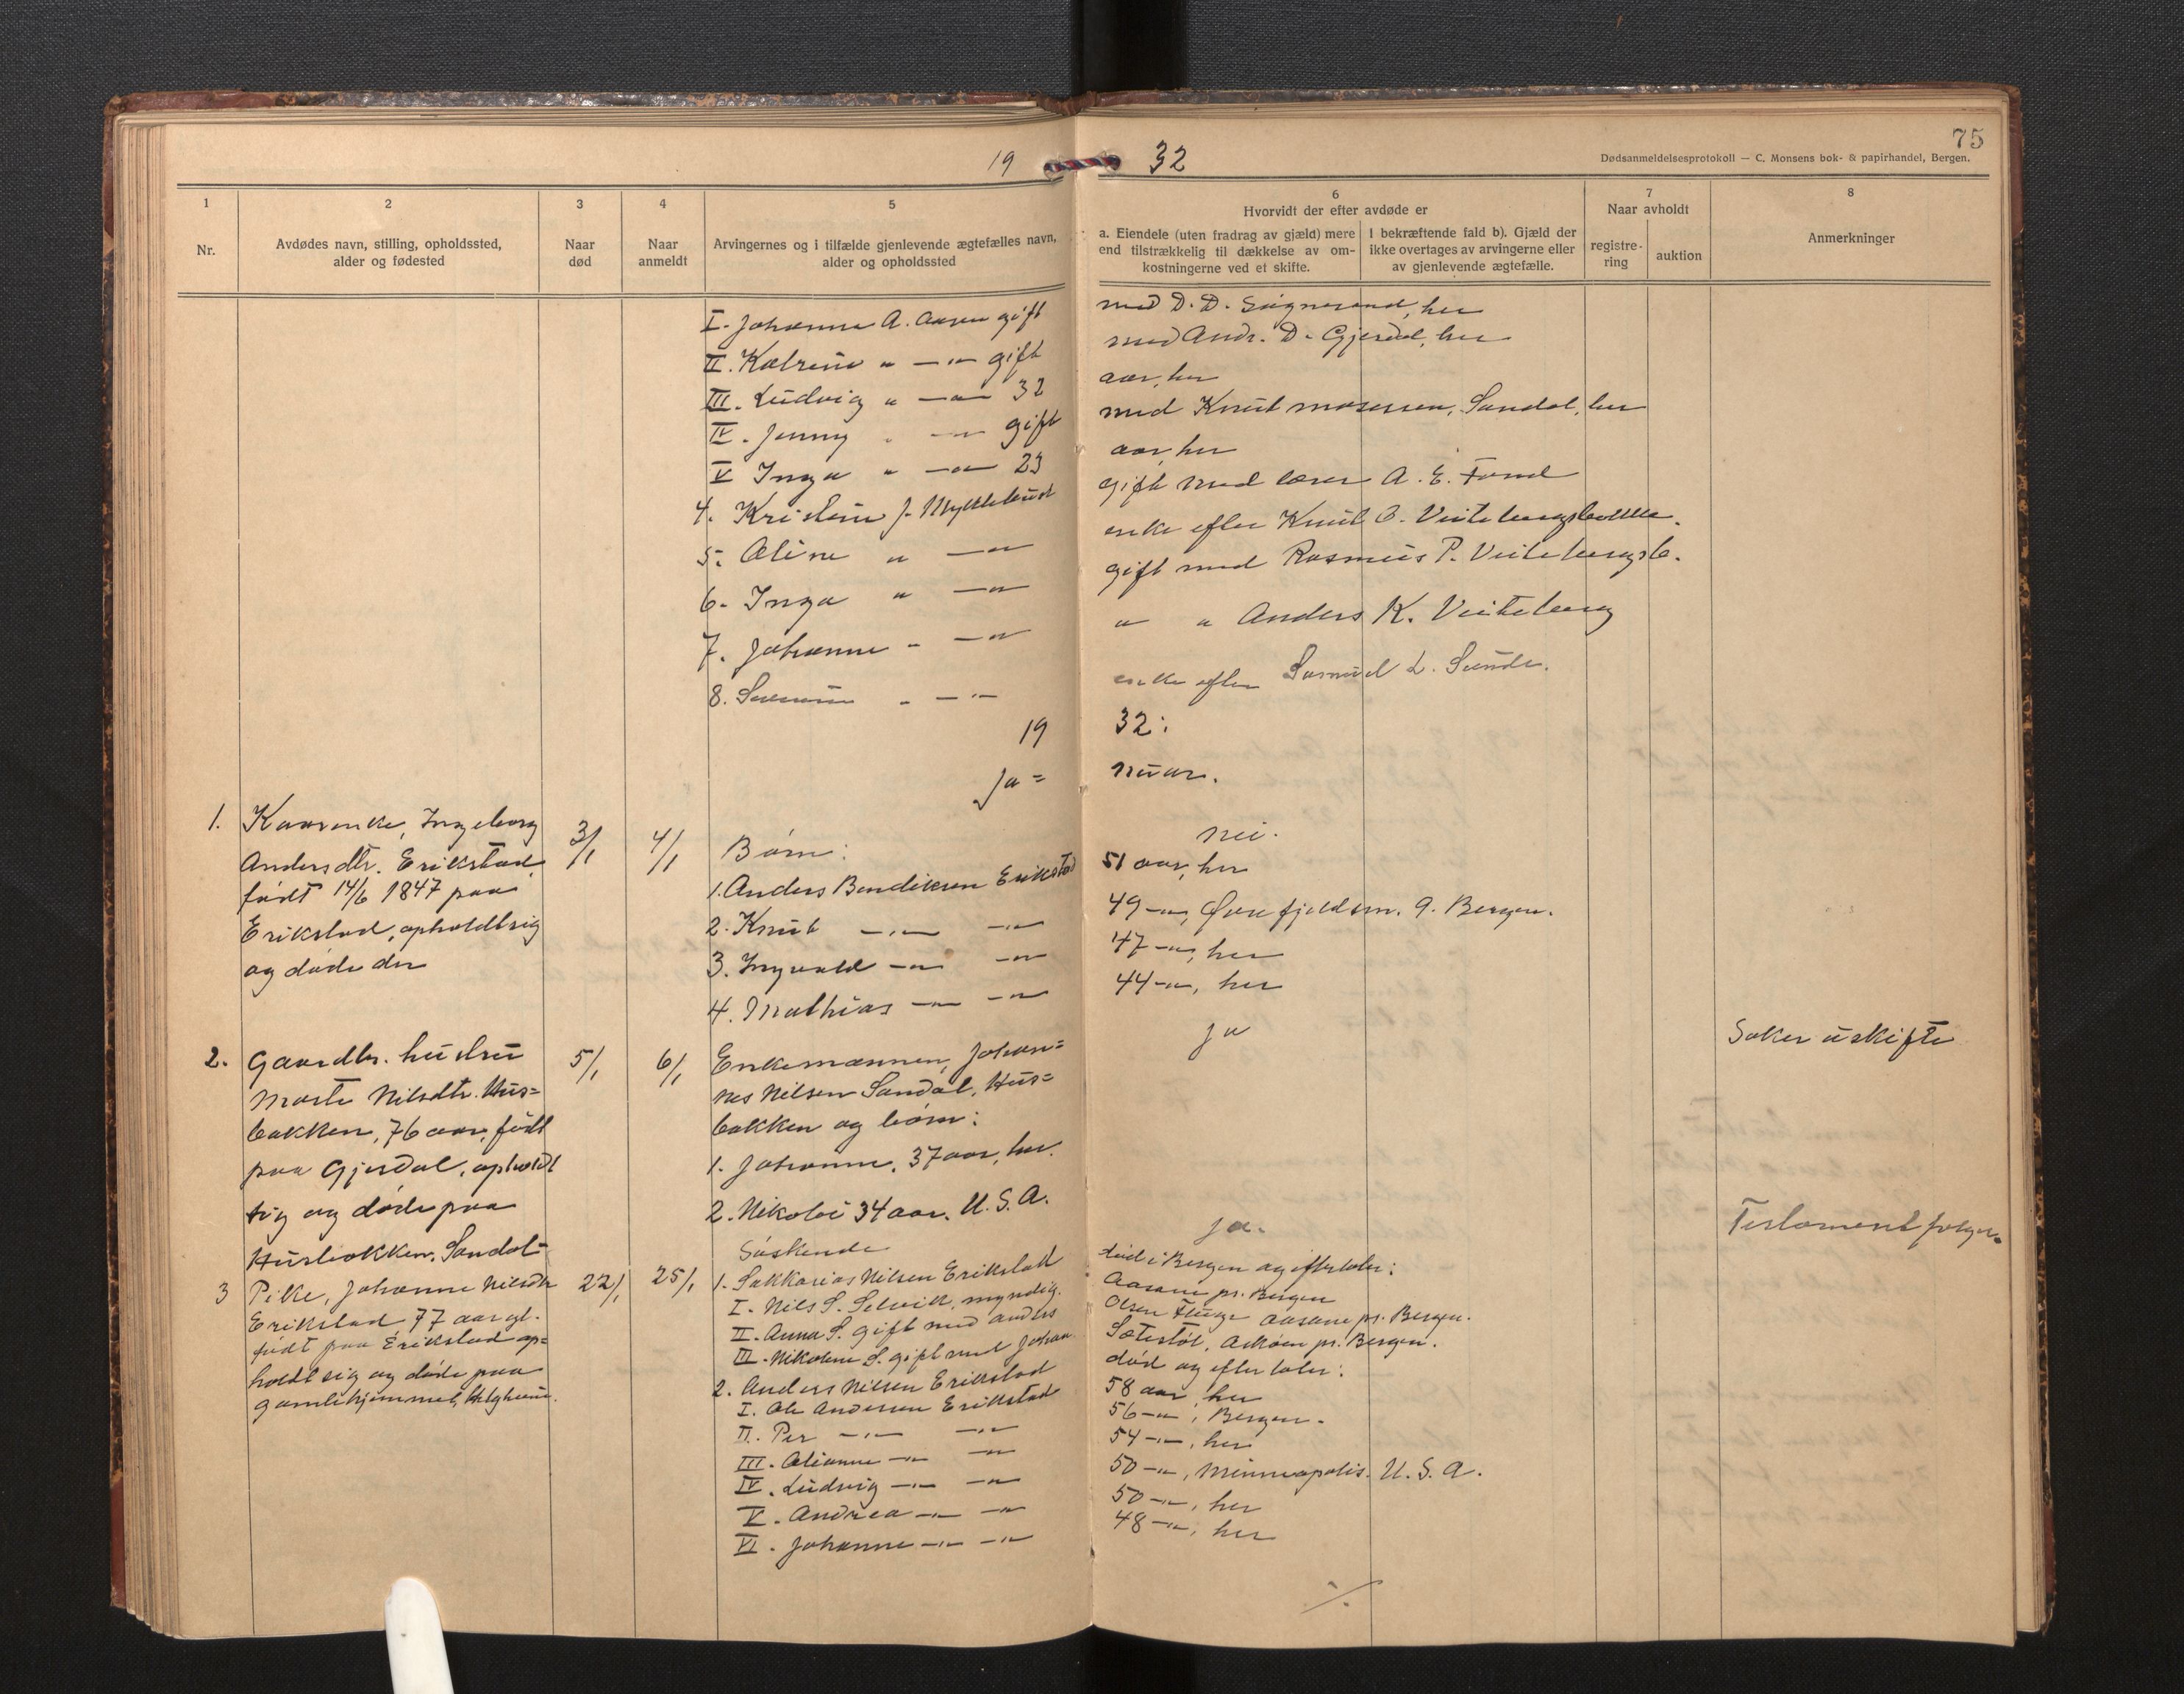 75
19 32
Dødsanmeldelsesprotokoll — C. Monsens bok- & papirhandel, Bergen.
1
Nr.
2
Avdødes navn, stilling, opholdssted,
alder og fødested
3
Naar
død
4
Naar
anmeldt
5
Arvingernes og i tilfælde gjenlevende ægtefælles navn,
alder og opholdssted
6
Hvorvidt der efter avdøde er
a. Eiendele (uten fradrag av gjæld) mere
end tilstrækkelig til dækkelse av om-
kostningerne ved et skifte.
I bekræftende fald b). Gjæld der
ikke overtages av arvingerne eller
av gjenlevende ægtefælle.
7
Naar avholdt
registre-
ring
auktion
8
Anmerkninger
I. Johanne A. Aasen gift med D. D. Søgnesand, her
II. Katrine " —"— gift med Andr. D. Gjesdal, her
III. Ludvig " —"— 32 aar, her
IV. Jenny " —"— gift med Knut Mosessen, Sandal, her
V Inga " —"— 23 aar, her
4. Kristine J. Myklebust gift med lærer A. E. Fond
5. Oline " —"— enke efter Knut O. Veitebergsbotten.
6. Inga " —"— gift med Rasmus P. Veitebergsb.
7. Johanne " —"— " " Anders K. Veiteberg
8. " —"— enke efter Samuel L. Sunde.
19 32:
Ja= nuar.
1. Kaarenke, Ingeborg
Andersdtr. Erikstad,
født 14/6 1847 paa
Erikstad, opholdt sig
og døde der
3/1
4/1
Børn: nei.
1. Anders Bendiksen Erikstad 51 aar, her
2. Knut —"— —"— 49 —"—, Øvrefjeldsm. 9. Bergen.
3. Ingvald —"— —"— 47 —"—, her
4. Mathias —"— —"— 44 —"—, her
2. Gaardbr. hustru
Marte Nilsdtr. Hus=
bakken, 76 aar, født
paa Gjesdal, opholdt
sig og døde paa
Husbakken, Sandal
5/1
6/1
Enkemannen, Johan= ja
nes Nilsen Sandal, Hus=
bakken og børn:
1. Johanne, 37 aar, her.
2. Nikolai 34 aar. U.S.A.
Søker uskifte
3 Pike, Johanne Nilsdtr
Erikstad 77 aar gl.
født paa Erikstad op=
holdt sig og døde paa
gamlehjemmet, Helgheim.
22/1
25/1
Søskende ja.
1. Sakkarias Nilsen Erikstad død i Bergen og efterlater:
I. Nils S. Selvik, myndig. Aasane pr. Bergen
II. Anna S. gift med Anders Olsen Fluge Aasane pr. Bergen.
III. Nikoline S. gift med Johan Sætestøl, Askøen pr. Bergen.
2. Anders Nilsen Erikstad død og efterlater:
I. Ole Andersen Erikstad 58 aar, her
II. Per —"— —"— 56 —"—, Bergen.
III. Olianne —"— —"— 54 —"—, her
IV. Ludvig —"— —"— 50 —"—, Minneapolis. U.S.A.
V. Andrea —"— —"— 50 —"—, her
VI. Johanne —"— —"— 48 —"—, her
Testament følger.